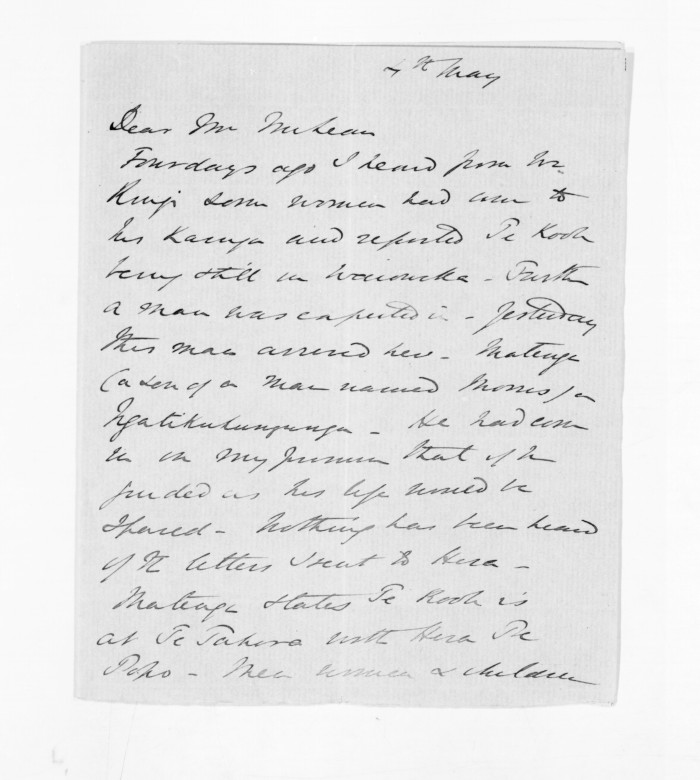 4th May
Dear Mr McLean
Four days ago I heard from Wi
Kingi some women had come to
his Kainga and reported Te Kooti
being still in Waioweka - Further
a man was expected in - Yesterday
this man arrived here - Matenga
(a son of a man named Morris) a
Ngatikahungunu - He had come
in on my promise that if he
guided us his life would be
spared - Nothing has been heard
of the letters I sent to Hira -
Matenga states Te Kooti is
at Te Tahora with Hira Te
Popo - Men women & children